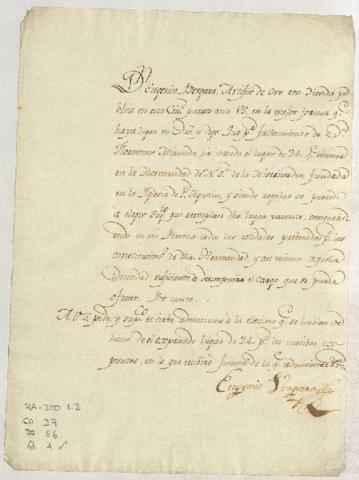 Dn Eugenio Vergara, Artifice de Oro con Tienda pu
blica en esta Ciud. paresco ante VS. en la mejor forma q.
haya lugar en Dro, y digo: Que p. fallecimiento de Dn
Florentino Miranda, ha vacado el lugar de 24 q. obtenia
en la Hermandad de N. S. de la Misericordia, fundada
en la Iglesia de S. Agustin, y siendo regular se proceda
a elegir Sug. que reemplaze dho lugar vacante, concurri
endo en mi Persona todas las calidades prevenidas p. las
constitucion. de dha. Hermandad, y asi mismo aquella
Decencia suficiente a desempeñar el cargo que se pueda
ofrecer. Por tanto
A VS pido, y sup. se sirva admitirme a la eleccion q. se hubiere de
hacer de el expresado lugar de 24. p. los motivos exp
puestos, en lo que recibire
Eugenio Vergara
RA-300 1.3
CO 37
DO 86